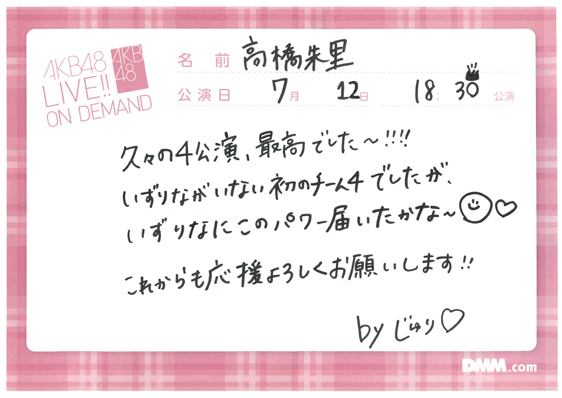 AKB48
LIVE!!
ON DEMAND
AKB
48
名前 高橋朱里
公演日 7月 12日 18:30 公演
久々の4公演、最高でした〜!!!!
いずりながいない初のチーム4でしたが、
いずりなにこのパワー届いたかな〜
これからも応援よろしくお願いします!!
by じゅり♡
DMM.com